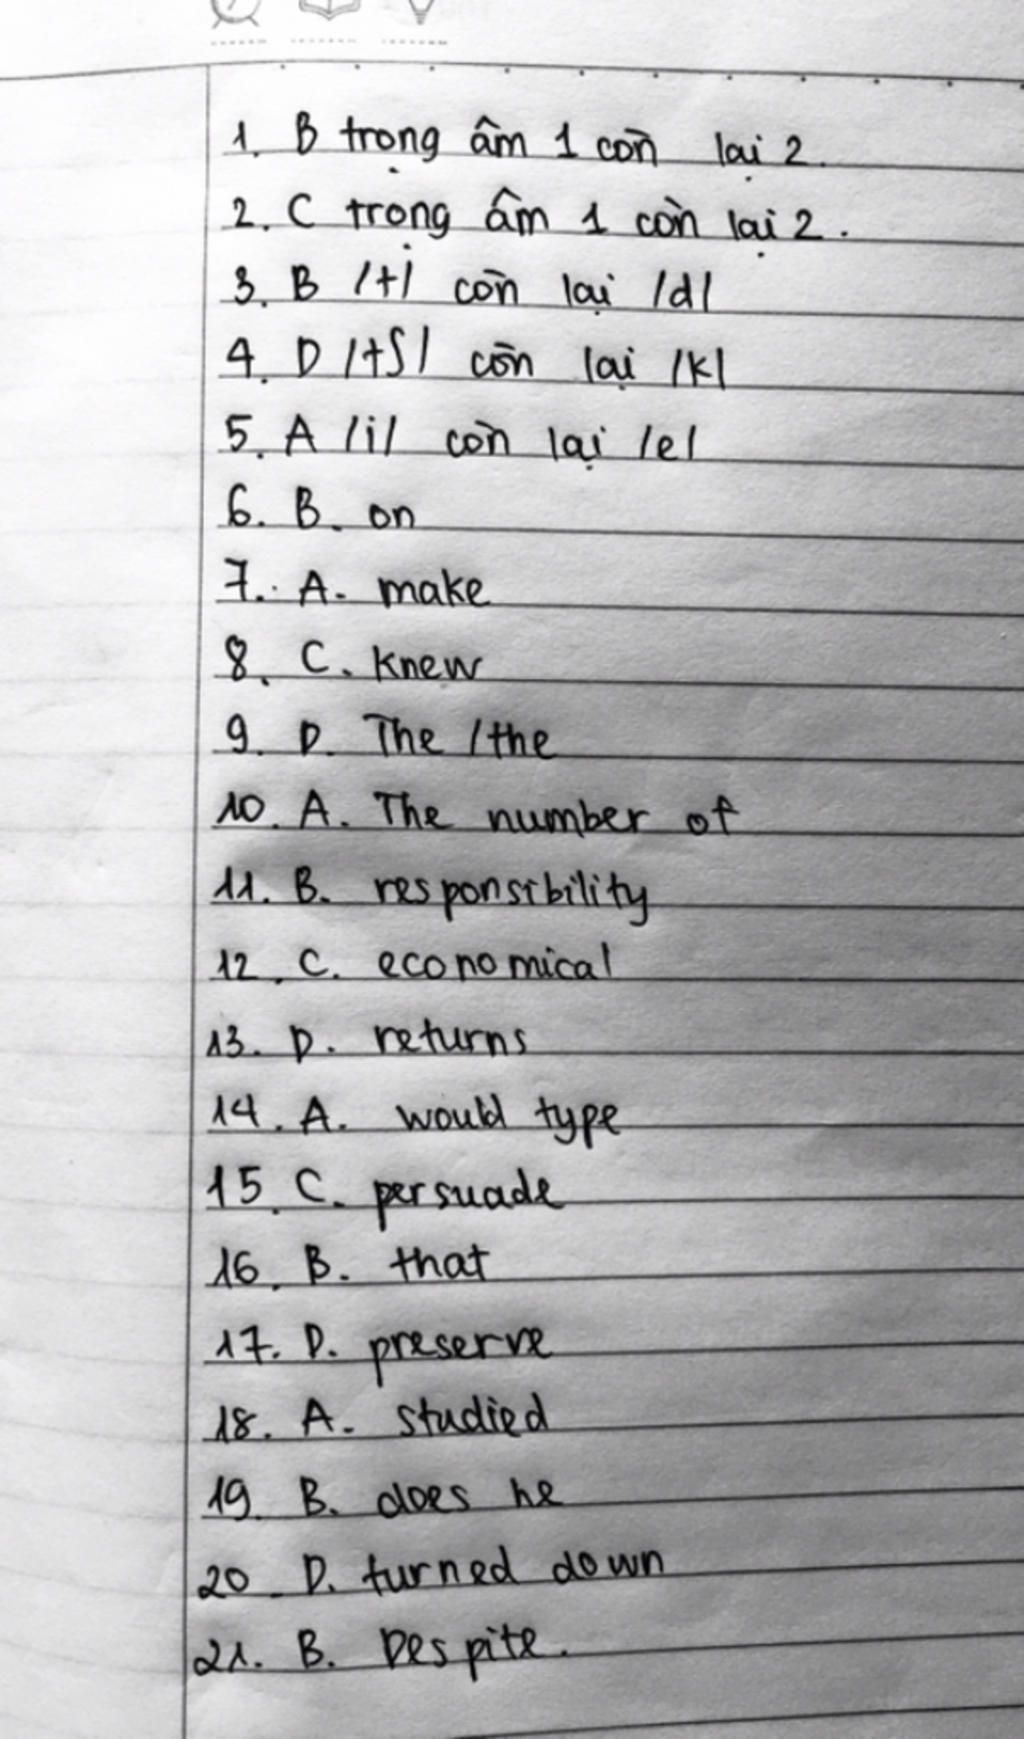 1. B trọng âm 1 còn lại 2.
2. C trọng âm 1 còn lại 2.
3. B /t/ còn lại /d/
4. D /tʃ/ còn lại /k/
5. A /i/ còn lại /e/
6. B. on
7. A. make
8. C. knew
9. D. The /the
10. A. The number of
11. B. responsibility
12. C. economical
13. D. returns
14. A. would type
15. C. persuade
16. B. that
17. D. preserve
18. A. studied
19. B. does he
20. D. turned down
21. B. Despite.